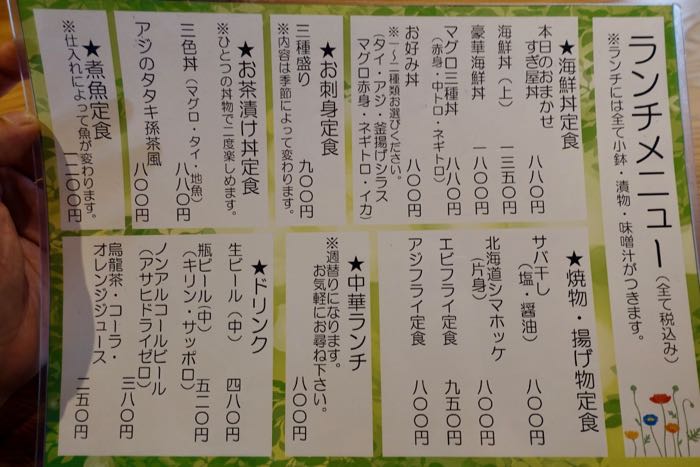 ランチメニュー(全て税込み)
※ランチには全て小鉢・漬物・味噌汁がつきます。
★海鮮丼定食
本日のおまかせ
すぎ屋丼 八八〇円
海鮮丼(上) 一三五〇円
豪華海鮮丼 一八〇〇円
マグロ三種丼 八八〇円
(赤身・中トロ・ネギトロ)
お好み丼 八〇〇円
※一~二種類お選びください。
(タイ・アジ・釜揚げシラス
マグロ赤身・ネギトロ・イカ)
★お刺身定食
三種盛り 九〇〇円
※内容は季節によって変わります。
★お茶漬け丼定食
※ひとつの丼物で二度楽しめます。
三色丼(マグロ・タイ・地魚) 八八〇円
アジのタタキ孫茶風 八〇〇円
★煮魚定食
※仕入れによって魚が変わります。
一二〇〇円
★焼物・揚げ物定食
サバ干し 八〇〇円
(塩・醤油)
北海道シマホッケ 八〇〇円
(片身)
エビフライ定食 九五〇円
アジフライ定食 八〇〇円
★中華ランチ
※週替りになります。
お気軽にお尋ね下さい。
八〇〇円
★ドリンク
生ビール(中) 四八〇円
瓶ビール(中) 五二〇円
(キリン・サッポロ)
ノンアルコールビール
(アサヒドライゼロ) 三八〇円
烏龍茶・コーラ・
オレンジジュース 二五〇円